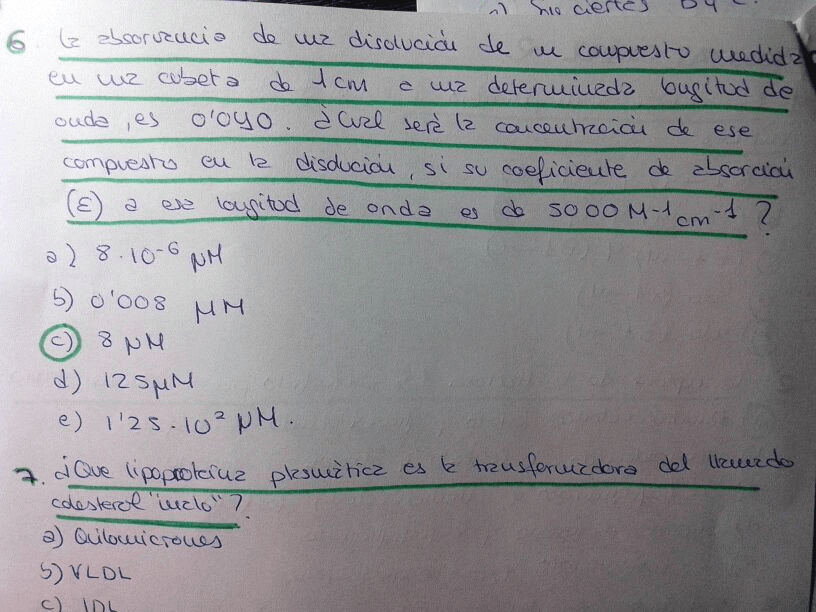 sno ciertas b y c.
6. la absorvancia de una disolución de un compuesto medida
en una cubeta de 1 cm a una determinada longitud de
onda, es 0'040. ¿Cual será la concentración de ese
compuesto en la disolución, si su coeficiente de absorción
(ε) a esa longitud de onda es de 5000 M-1 cm-1?
a) 8·10-6 µM
b) 0'008 µM
c) 8 µM
d) 125µM
e) 1'25·10² µM.
7. ¿Que lipoproteína plasmática es la transformadora del llamado
colesterol "malo"?
a) Quilomicrones
b) VLDL
c) IDL